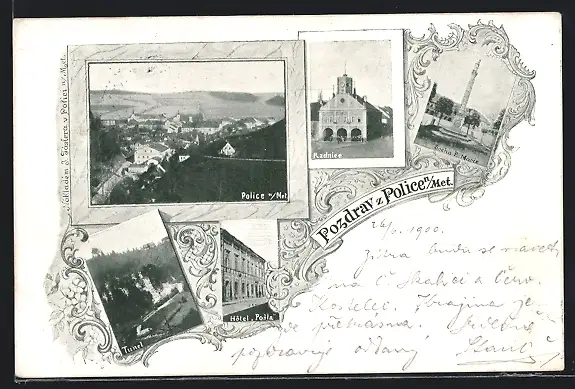 Nákladem J. Pastera v Polici n/Met.
Police n/Met.
Radnice
Socha P. Marie
Pozdrav z Police n/Met.
Tunel
Hôtel „Pošta"
1900.
Zítra budu se
na Č. Skalici a Červ.
Kostelec. Krajina je
překrásná. Srdečně
pozdravuje oddaný